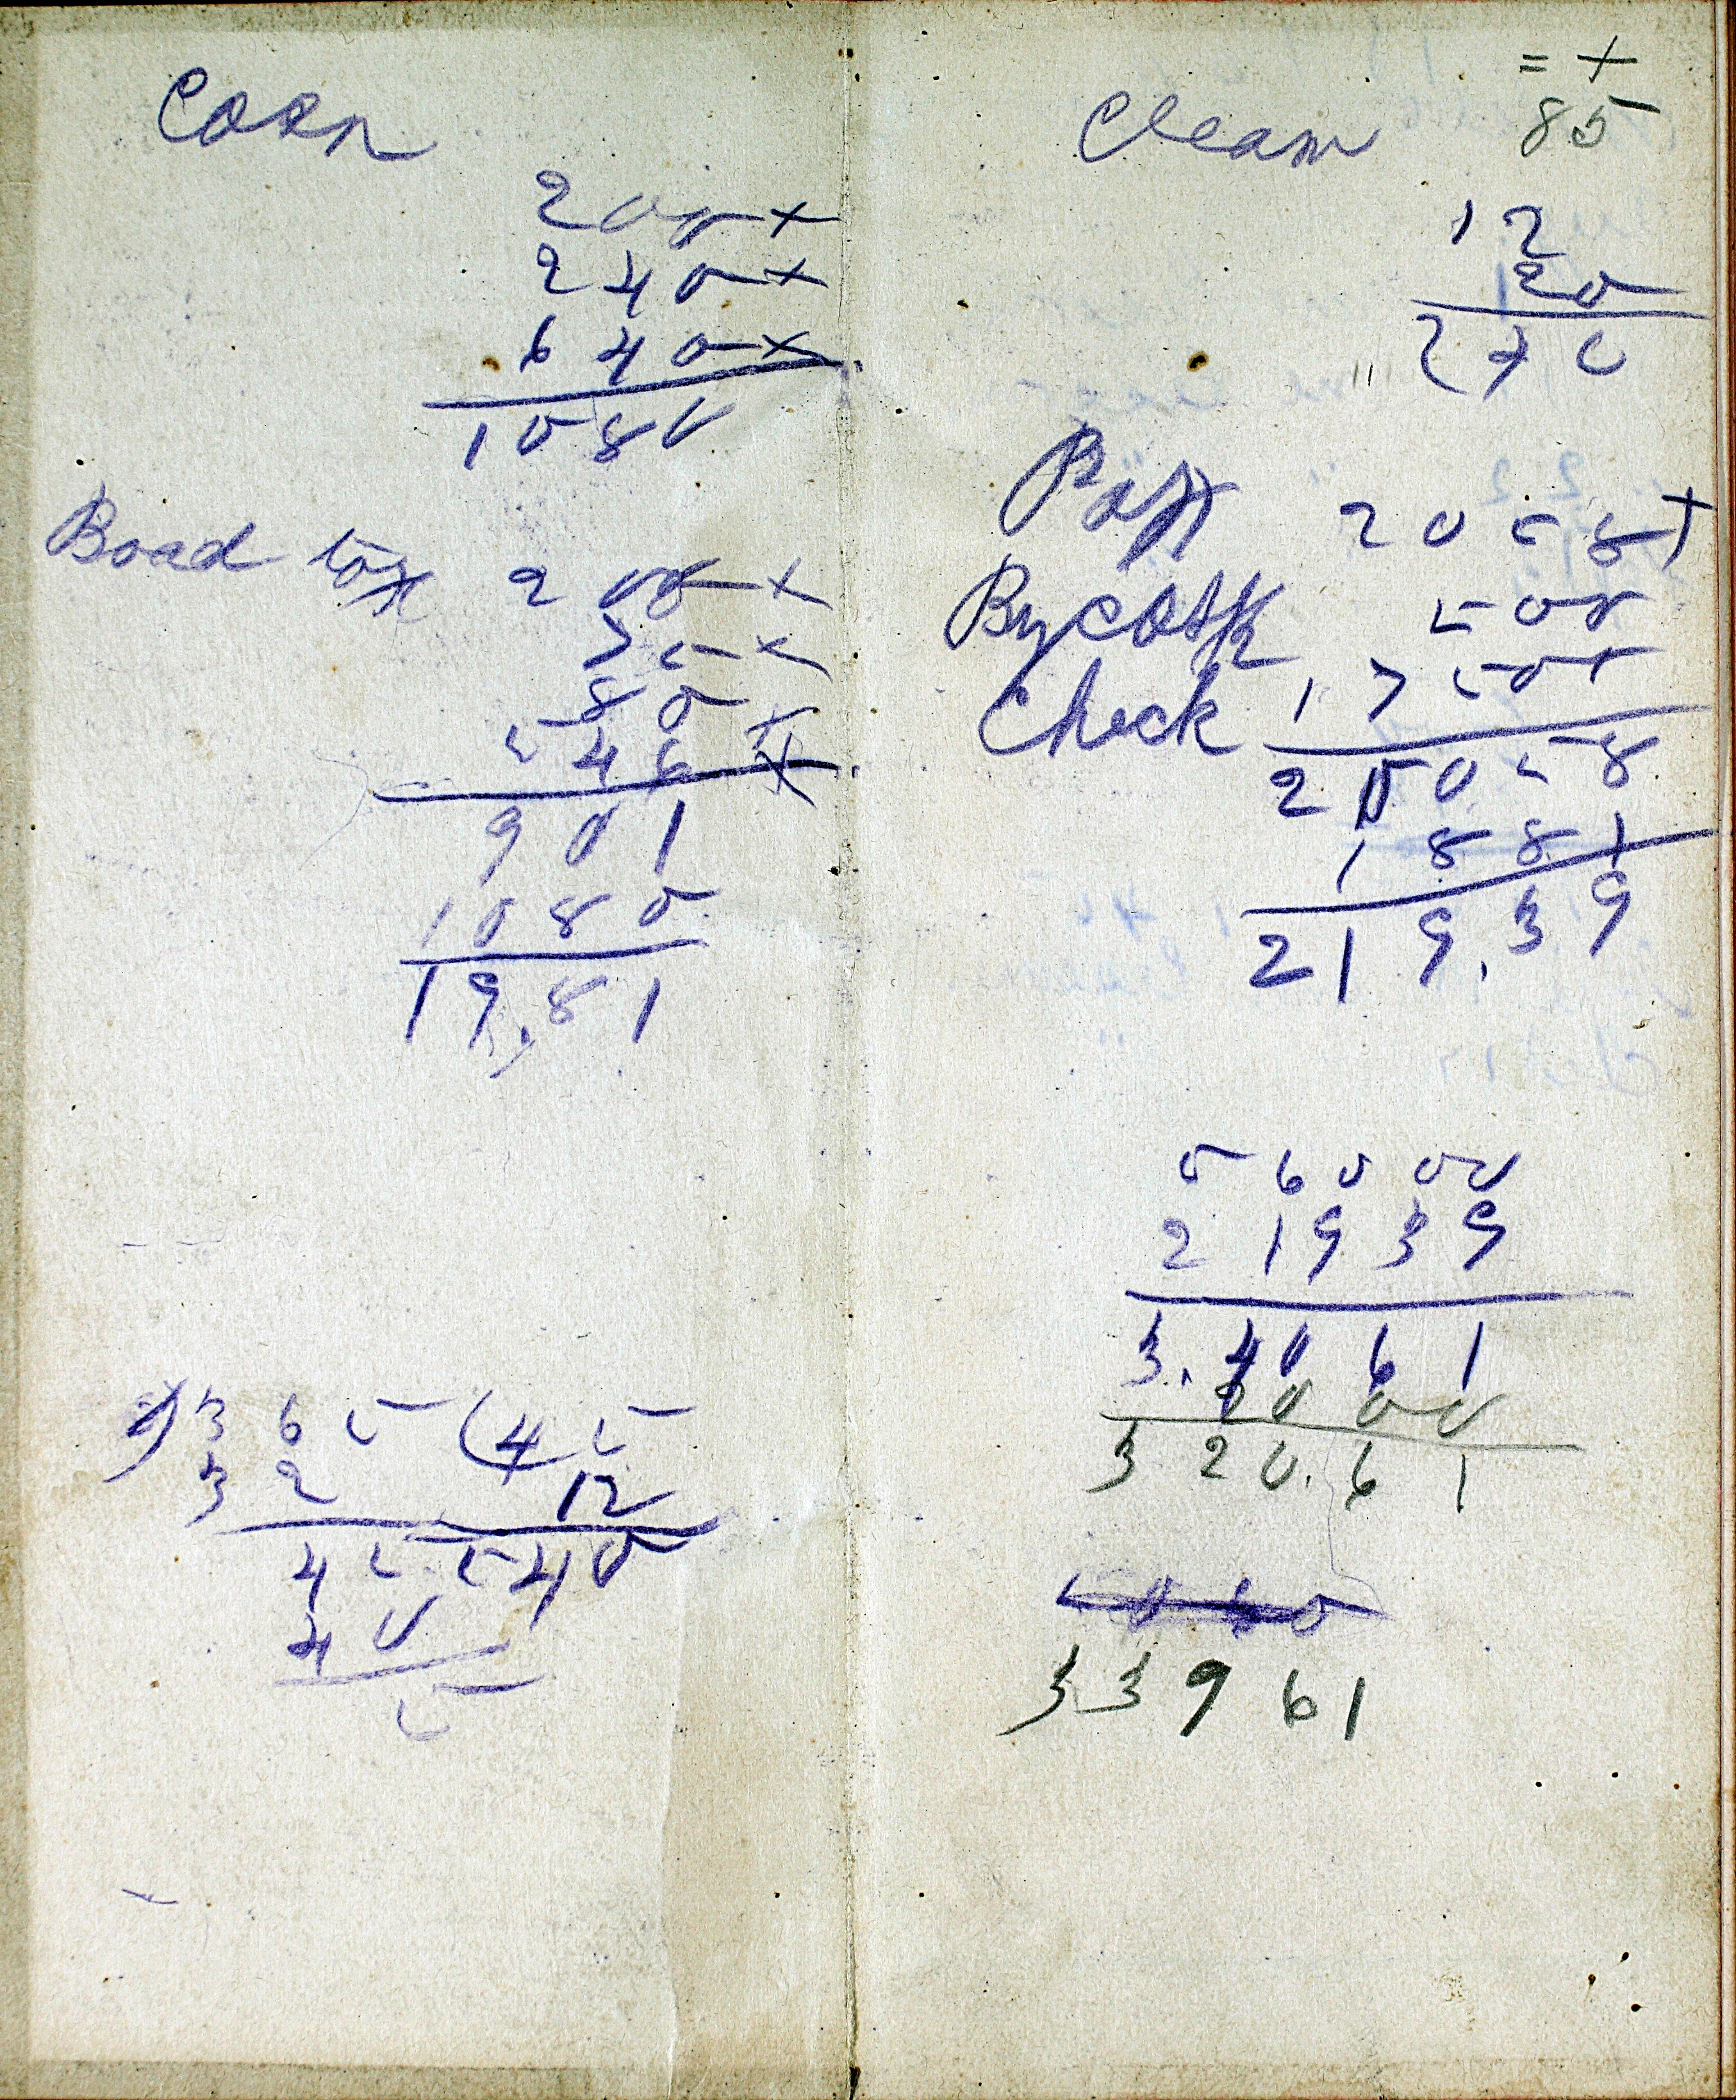 Corn
200 x
240 x
640 x
1080
Boad tax 200 x
75 x
80 x
546 x
901
1080
19.81
8) 3 6 5 ( 4 5
3 2 12
4 5 540
4 0
5
= +
Cleam 85
12
20
270
Pat 2058 +
By cash 500
Check 17500
20058
1881
219,39
56000
21939
3.4061
2000
320.61
33961